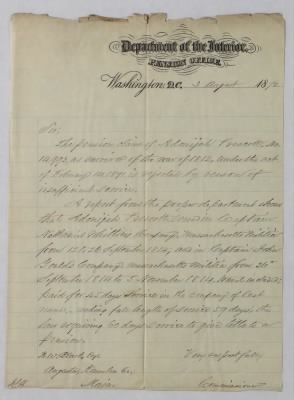 Department of the Interior,
PENSION OFFICE,
Washington D.C. 3 August 187
Sir:
The pension claim of Adonijah Prescott, No.
14,973, as survivor of the war of 1812, under the act
of February 14 1871 is rejected by reason of
insufficient service.
A report from the proper department shows
that Adonijah Prescott served in Captain
Nathaniel Whittier's Company Massachusetts Militia
from 12 to 24 September 1814, and in Captain John
Gould's Company Massachusetts Militia from 24
September 1814 to 5 November 1814, and was
paid for 45 days service in the company of last
named, making full length of service 59 days, the
law requiring 60 days service to give title to a
pension.
Very respectfully,
Esq
Augusta, Kennebec Co.
Maine
Commissioner